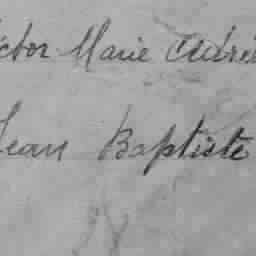 ictor Marie Adrie
Jean Baptiste